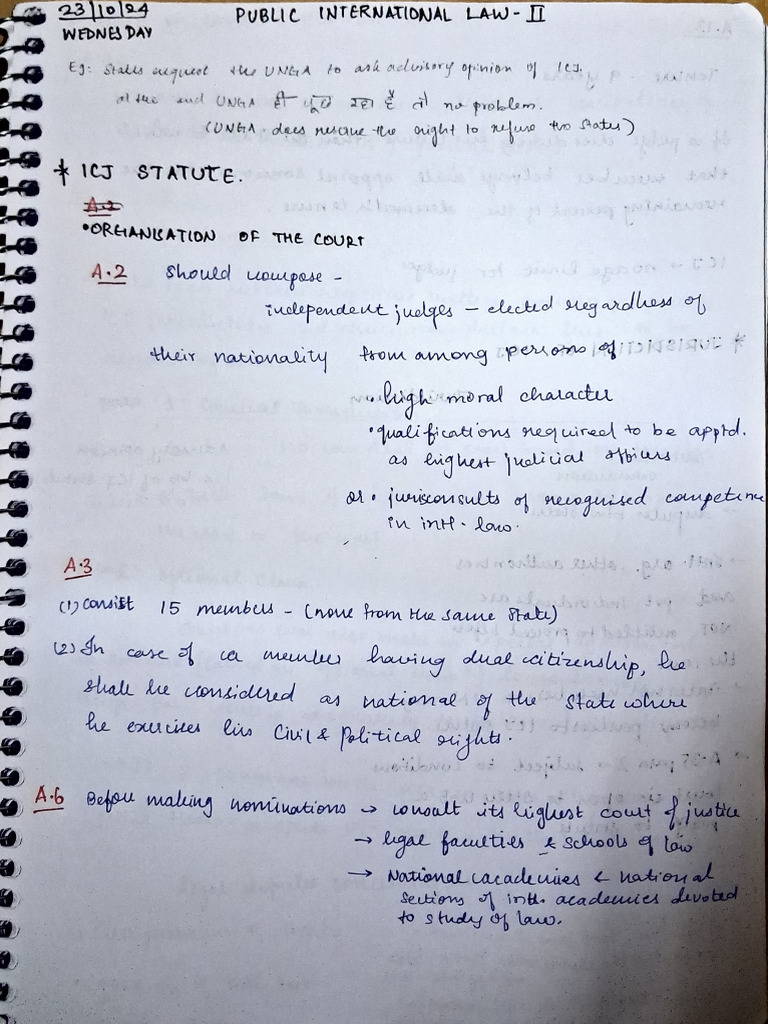 23/10/24
PUBLIC INTERNATIONAL LAW - II
WEDNESDAY
Eg: States request the UNGA to ask advisory opinion of ICJ.
at the end UNGA ही पूछ रहा है तो no problem.
(UNGA does reserve the right to refuse the States)
* ICJ STATUTE.
A.2
• ORGANISATION OF THE COURT
A.2 Should compose -
independent judges - elected regardless of
their nationality from among persons of
• high moral character
• qualifications required to be apptd.
as highest judicial officers
or • jurisconsults of recognised competence
in intl. law.
A.3
(1) consist 15 members - (none from the same State)
(2) In case of a member having dual citizenship, he
shall be considered as national of the State where
he exercises his Civil & Political rights.
A.6 Before making nominations → consult its highest court of justice
→ legal faculties & schools of law
→ National academies & national
sections of intl. academies devoted
to study of law.